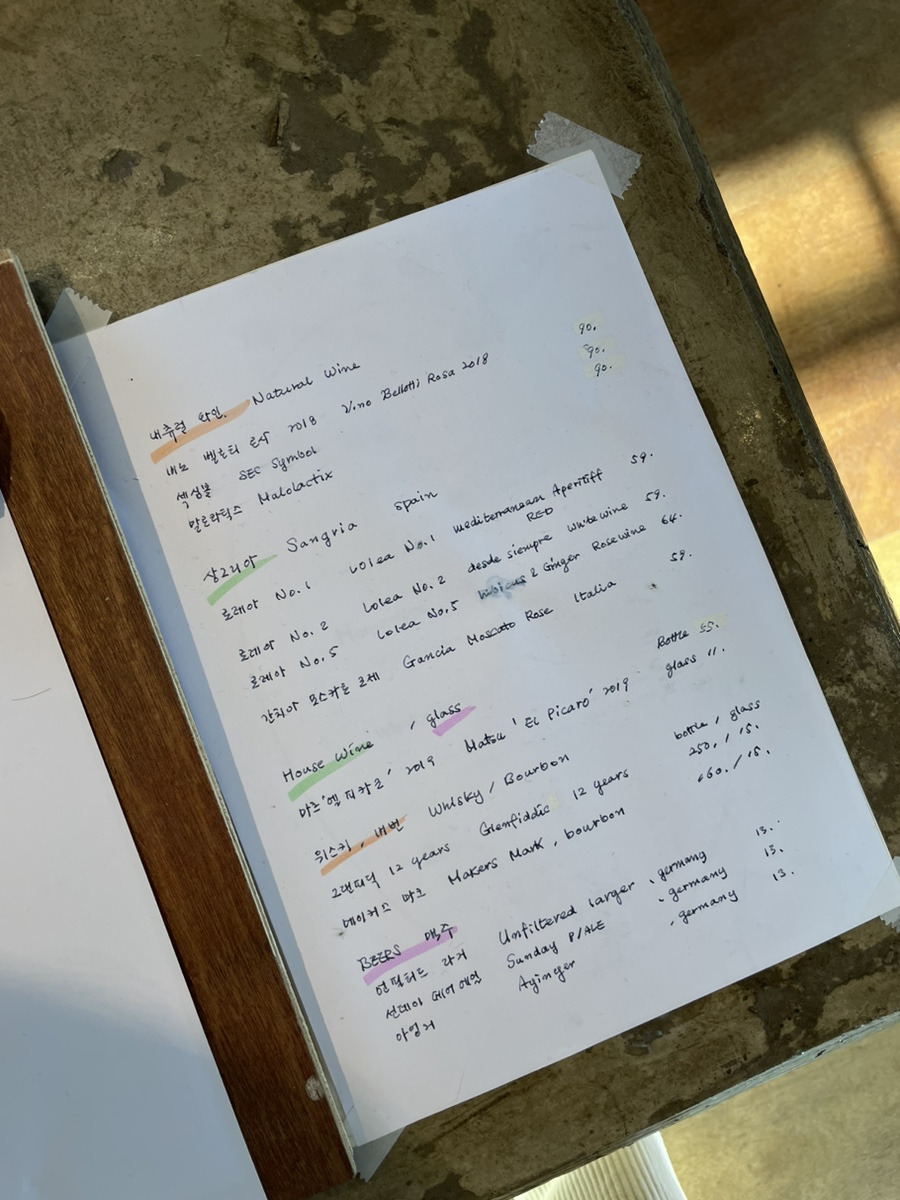 내츄럴 와인. Natural Wine
비노 벨로티 로사 2018 Vino Bellotti Rosa 2018 90.
섹심볼 SEC Symbol 90.
말로락틱스 Malolactix 90.
상그리아 Sangria Spain
로레아 No.1 Lolea No.1 mediterranean Aperitiff 59.
RED
로레아 No.2 Lolea No.2 desde siempre White wine 59.
로레아 No.5 Lolea No.5 hibicus & Ginger Rosewine 64.
간치아 모스카토 로제 Gancia Moscato Rose Italia 59.
House Wine / glass
마츠 '엘 피카로' 2019 Matsu 'El Picaro' 2019 Bottle 55.
glass 11.
위스키, 버번 Whisky / Bourbon bottle / glass
그랜피딕 12 years Glenfiddic 12 years 250. / 15.
메이커스 마크 Makers Mark, bourbon 160. / 15.
BEERS 맥주
언필터드 라거 Unfiltered larger , germany 13.
선데이 페어에일 Sunday P/ALE , germany 13.
아잉거 Ayinger , germany 13.